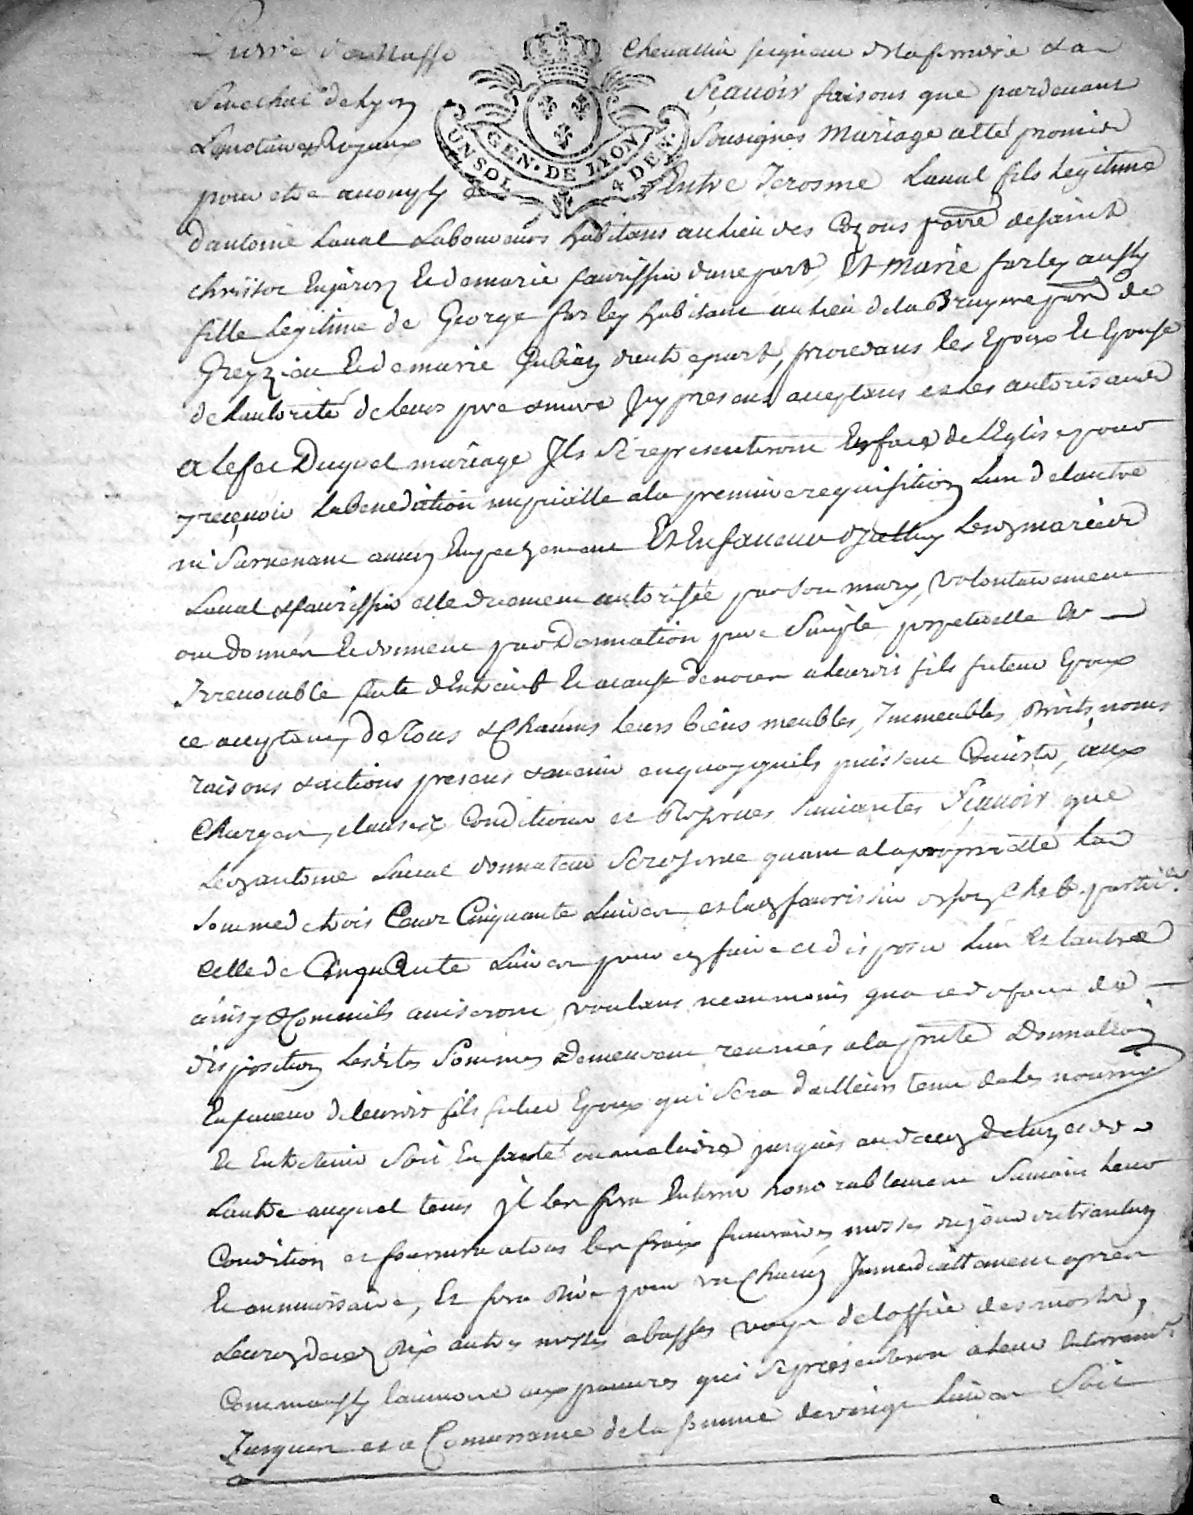 Pierre de Masso Chevallier seigneur de la
Senechal de Lyon Scauoir faisons que pardeuant
Le notaire Royaux Sousignes Mariage a été promis
pour etre accomply Entre Jerosme Laual fils Legitime
GEN · DE LYON ·
UN SOL 4 DEN ·
d'antoine Laual Laboureurs habitans au lieu des parre de saint
christoe En jarez Et de marie faurissin d'une part, Et Marie farley aussy
fille Legitime de George farley habitant au lieu de la Bruyere parr de
Greyzieu Et de marie d'autre part, procedans les Epoux Et Epouse
de Lautorité de leurs pere & mere Jcy presens acceptans et les autorisans
a Leffet Duquel mariage Jls se representeront En face de l'Eglise pour
y recevoir La Benediction nuptialle a la premiere requisition Lun de lautre
ni Suruenant aucun Empechement Et En faueur dJcelluy Lesd mariés
Laual & faurissin elle duement autorisée par son mary, volontairement
ont donnés Et donnent par Donnation pure Simple perpetuelle Et
Irreuocable faite d'Entreuifs Et a cause de noces a leurdit fils futeur Epoux
ce acceptant, de Tous & Chacuns leurs biens meubles, Immeubles, droits, noms
raisons & actions presens & auenir en quoy quils puissent Consister, aux
Charges, clauses Conditions et Reserues Suiuantes Scauoir que
Led antoine Laual donnateur Se reserue quant a la proprieté La
Somme de trois Cent Cinquante Liures et lad faurissin
celle de Cinquante Liures pour en faire et disposer Lun Et Lautre
ainsy & Comme ils auiseront, voulans neanmoins qua deffaut de
disposition Lesdites Sommes Demeurent reunies a la pnte Donnation
En faueur de leurdit fils futur Epoux qui Sera d'ailleurs tenu de les nourrir
Et Entretenir Soit En santé ou maladie jusques au deces de Lun et de
Lautre auquel tems jl les fera Enterrer honorablement Suiuant leur
Condition et fournira a tous les fraix funeraires, messes du jour
Et anniuersaire, Et fera dire pour un Chacun Jmmediattement apres
Leursd deces dix autres messes a basses voye de loffice des morts,
Comme aussy laumone aux pauures qui se presenteront a leur Enterrement
Jusques et a Concurrance de la somme de vingt Liures Soit